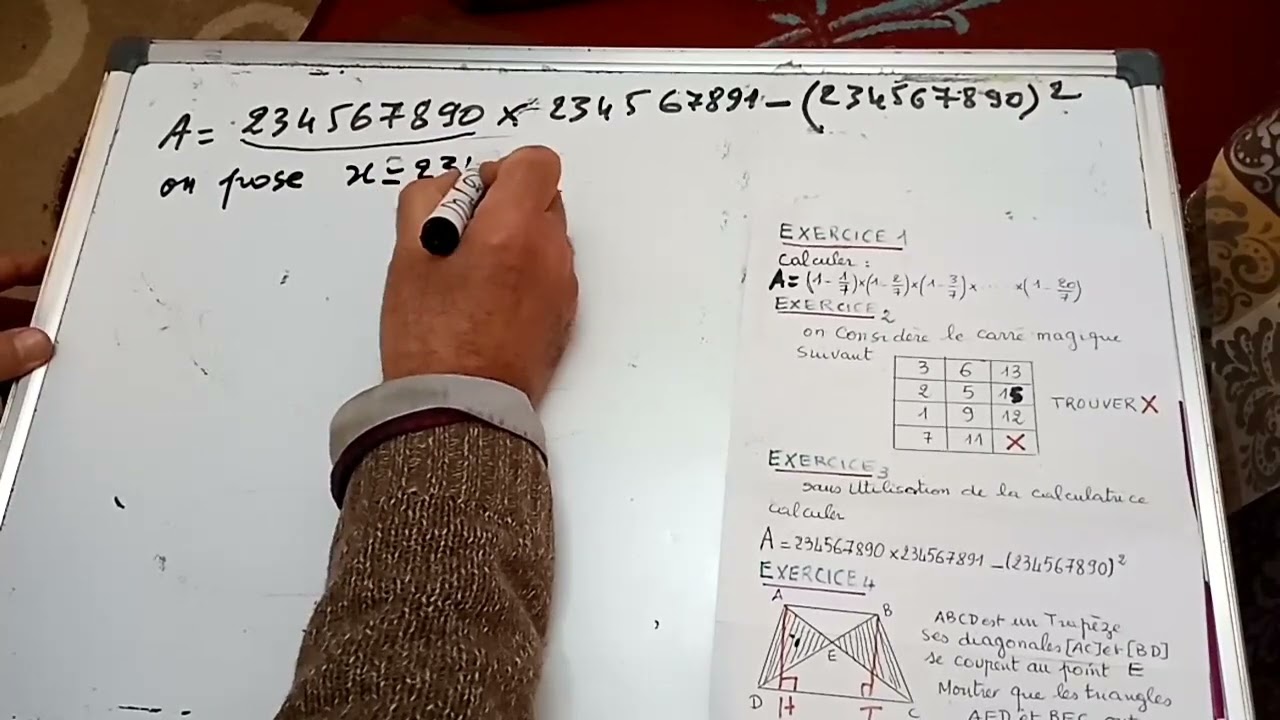 A = 234567890 × 234567891 − (234567890)²
on pose x = 23
EXERCICE 1
Calculer :
A = (1 - 1/7)×(1 - 2/7)×(1 - 3/7)× ... ×(1 - 20/7)
EXERCICE 2
on Considère le carré magique
suivant
3 6 13
2 5 15
TROUVER X
1 9 12
7 11 X
EXERCICE 3
sans Utilisation de la calculatrice
calculer
A = 234567890 × 234567891 − (234567890)²
EXERCICE 4
A B
ABCD est un Trapèze
ses diagonales [AC] et [BD]
E
se coupent au point E
Montrer que les triangles
D H T C
AED et BEC ont